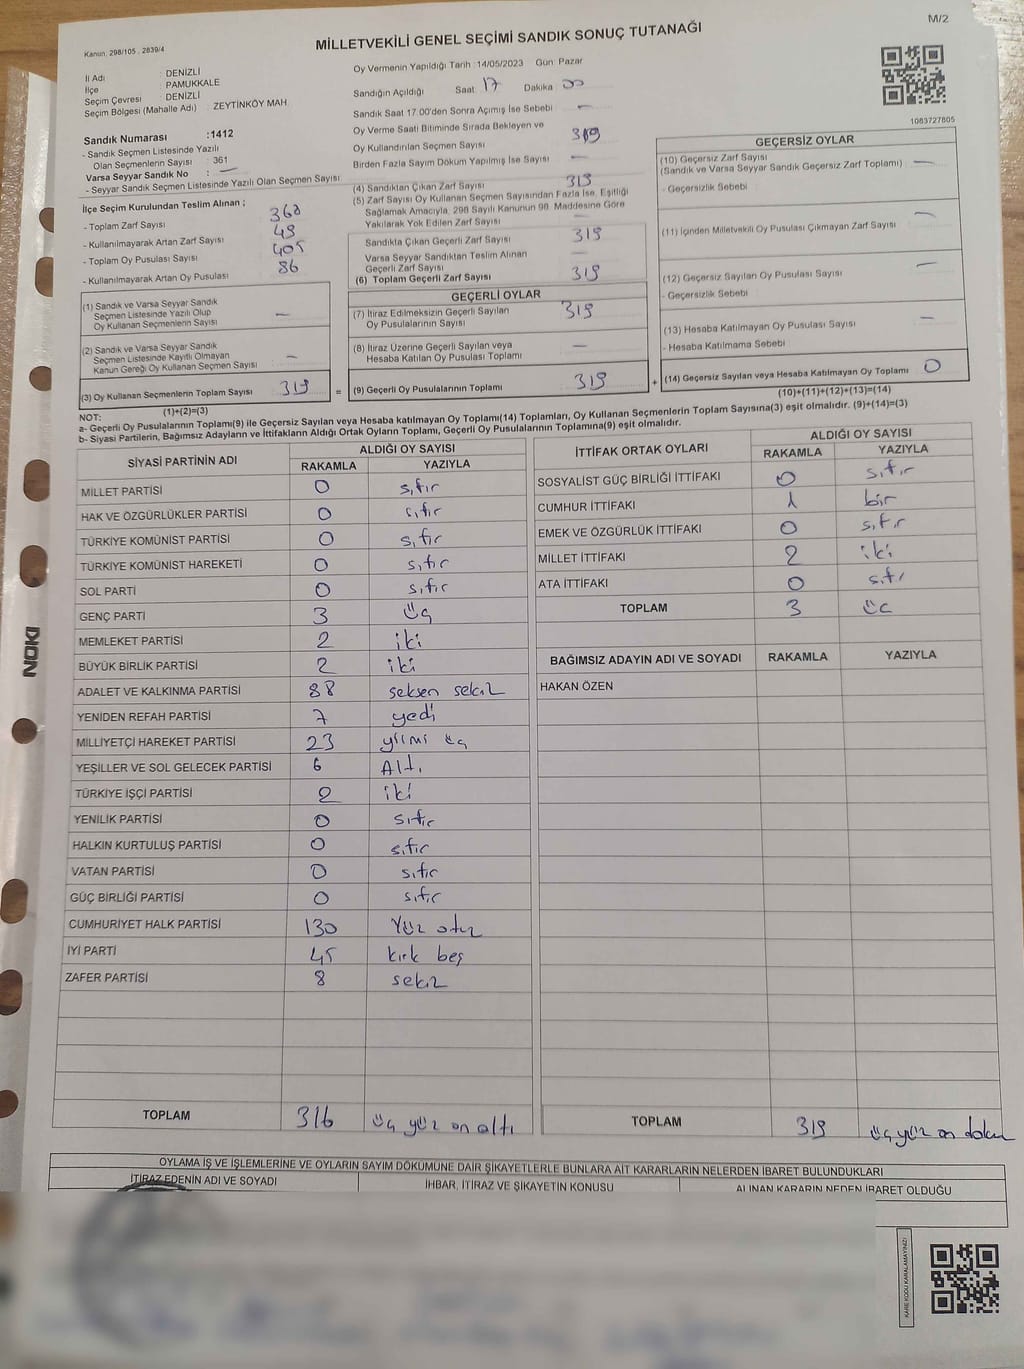 M/2
Kanun. 298/105 , 2839/4
MİLLETVEKİLİ GENEL SEÇİMİ SANDIK SONUÇ TUTANAĞI
İl Adı : DENİZLİ
İlçe : PAMUKKALE
Seçim Çevresi : DENİZLİ
Seçim Bölgesi (Mahalle Adı) : ZEYTİNKÖY MAH.
Sandık Numarası :1412
- Sandık Seçmen Listesinde Yazılı
Olan Seçmenlerin Sayısı : 361
Varsa Seyyar Sandık No : —
- Seyyar Sandık Seçmen Listesinde Yazılı Olan Seçmen Sayısı:
İlçe Seçim Kurulundan Teslim Alınan ;
- Toplam Zarf Sayısı 368
- Kullanılmayarak Artan Zarf Sayısı 49
- Toplam Oy Pusulası Sayısı 405
- Kullanılmayarak Artan Oy Pusulası 86
(1) Sandık ve Varsa Seyyar Sandık
Seçmen Listesinde Yazılı Olup
Oy Kullanan Seçmenlerin Sayısı —
(2) Sandık ve Varsa Seyyar Sandık
Seçmen Listesinde Kayıtlı Olmayan
Kanun Gereği Oy Kullanan Seçmen Sayısı —
(3) Oy Kullanan Seçmenlerin Toplam Sayısı 319 =
(1)+(2)=(3)
Oy Vermenin Yapıldığı Tarih :14/05/2023 Gün: Pazar
Sandığın Açıldığı Saat 17 Dakika 00
Sandık Saat 17:00'den Sonra Açımış İse Sebebi —
Oy Verme Saati Bitiminde Sırada Bekleyen ve
Oy Kullandırılan Seçmen Sayısı 319
Birden Fazla Sayım Döküm Yapılmış İse Sayısı —
(4) Sandıktan Çıkan Zarf Sayısı 319
(5) Zarf Sayısı Oy Kullanan Seçmen Sayısından Fazla İse, Eşitliği
Sağlamak Amacıyla, 298 Sayılı Kanunun 98. Maddesine Göre
Yakılarak Yok Edilen Zarf Sayısı —
Sandıkta Çıkan Geçerli Zarf Sayısı 319
Varsa Seyyar Sandıktan Teslim Alınan
Geçerli Zarf Sayısı —
(6) Toplam Geçerli Zarf Sayısı 319
GEÇERLİ OYLAR
(7) İtiraz Edilmeksizin Geçerli Sayılan
Oy Pusulalarının Sayısı 319
(8) İtiraz Üzerine Geçerli Sayılan veya
Hesaba Katılan Oy Pusulası Toplamı —
(9) Geçerli Oy Pusulalarının Toplamı 319 +
1083727805
GEÇERSİZ OYLAR
(10) Geçersiz Zarf Sayısı
(Sandık ve Varsa Seyyar Sandık Geçersiz Zarf Toplamı) —
- Geçersizlik Sebebi :
(11) İçinden Milletvekili Oy Pusulası Çıkmayan Zarf Sayısı —
(12) Geçersiz Sayılan Oy Pusulası Sayısı —
- Geçersizlik Sebebi :
(13) Hesaba Katılmayan Oy Pusulası Sayısı —
- Hesaba Katılmama Sebebi :
(14) Geçersiz Sayılan veya Hesaba Katılmayan Oy Toplamı 0
(10)+(11)+(12)+(13)=(14)
NOT:
a- Geçerli Oy Pusulalarının Toplamı(9) ile Geçersiz Sayılan veya Hesaba katılmayan Oy Toplamı(14) Toplamları, Oy Kullanan Seçmenlerin Toplam Sayısına(3) eşit olmalıdır. (9)+(14)=(3)
b- Siyasi Partilerin, Bağımsız Adayların ve İttifakların Aldığı Ortak Oyların Toplamı, Geçerli Oy Pusulalarının Toplamına(9) eşit olmalıdır.
SİYASİ PARTİNİN ADI ALDIĞI OY SAYISI
RAKAMLA YAZIYLA
MİLLET PARTİSİ 0 sıfır
HAK VE ÖZGÜRLÜKLER PARTİSİ 0 sıfır
TÜRKİYE KOMÜNİST PARTİSİ 0 sıfır
TÜRKİYE KOMÜNİST HAREKETİ 0 sıfır
SOL PARTİ 0 sıfır
GENÇ PARTİ 3 üç
MEMLEKET PARTİSİ 2 iki
BÜYÜK BİRLİK PARTİSİ 2 iki
ADALET VE KALKINMA PARTİSİ 88 seksen sekiz
YENİDEN REFAH PARTİSİ 7 yedi
MİLLİYETÇİ HAREKET PARTİSİ 23 yirmi üç
YEŞİLLER VE SOL GELECEK PARTİSİ 6 Altı
TÜRKİYE İŞÇİ PARTİSİ 2 iki
YENİLİK PARTİSİ 0 sıfır
HALKIN KURTULUŞ PARTİSİ 0 sıfır
VATAN PARTİSİ 0 sıfır
GÜÇ BİRLİĞİ PARTİSİ 0 sıfır
CUMHURİYET HALK PARTİSİ 130 Yüz otuz
İYİ PARTİ 45 kırk beş
ZAFER PARTİSİ 8 sekiz
TOPLAM 316 üç yüz on altı
İTTİFAK ORTAK OYLARI ALDIĞI OY SAYISI
RAKAMLA YAZIYLA
SOSYALİST GÜÇ BİRLİĞİ İTTİFAKI 0 sıfır
CUMHUR İTTİFAKI 1 bir
EMEK VE ÖZGÜRLÜK İTTİFAKI 0 sıfır
MİLLET İTTİFAKI 2 iki
ATA İTTİFAKI 0 sıfı
TOPLAM 3 üç
BAĞIMSIZ ADAYIN ADI VE SOYADI RAKAMLA YAZIYLA
HAKAN ÖZEN
TOPLAM 319 üç yüz on dokuz
OYLAMA İŞ VE İŞLEMLERİNE VE OYLARIN SAYIM DÖKÜMÜNE DAİR ŞİKAYETLERLE BUNLARA AİT KARARLARIN NELERDEN İBARET BULUNDUKLARI
İTİRAZ EDENİN ADI VE SOYADI İHBAR, İTİRAZ VE ŞİKAYETİN KONUSU ALINAN KARARIN NEDEN İBARET OLDUĞU
KARE KODU KARALAMAYINIZ!
NOKI